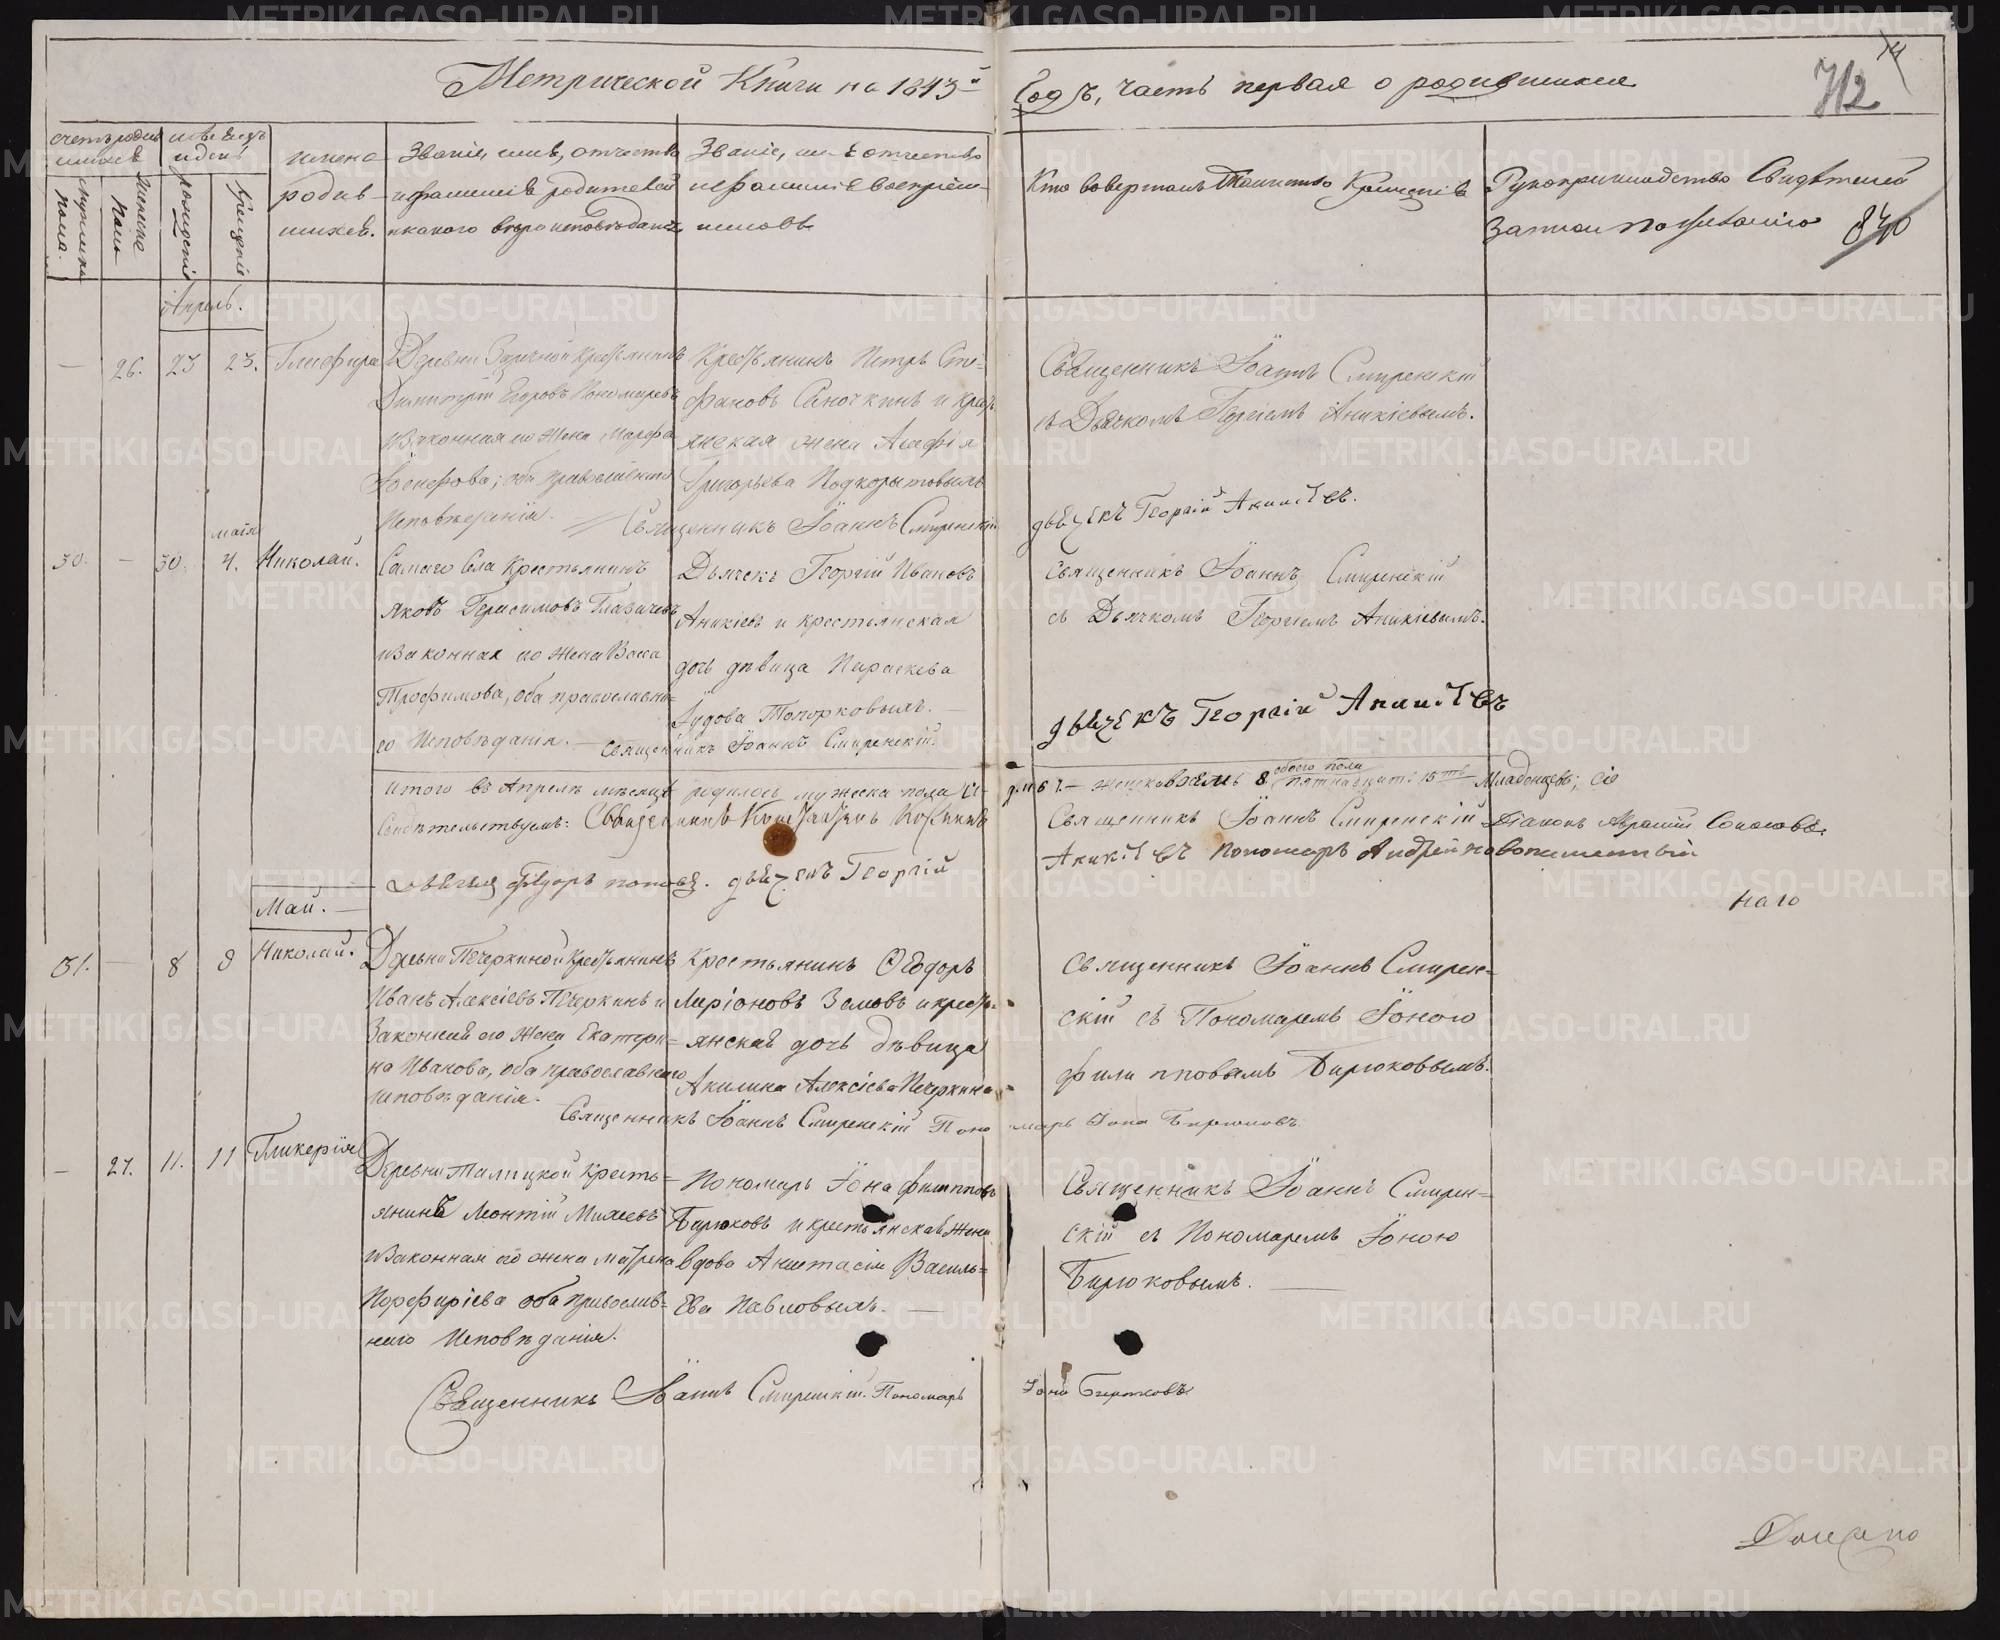 Метрической Книги на 1843й Годъ, часть первая о родившихся
712
840
счетъ родив
шихся
мужеска
пола.
женска
пола
мѣсяцъ
и день
рожденія
крещенія
имена
родив-
шихся.
Званіе, имя, отчество
и фамилія родителей
и какого вѣроисповѣданія
Званіе, имя отчество
и фамилія воспріем-
никовъ
Кто совершалъ Таинство Крещенія
Рукоприкладство Свидѣтелей
записи по желанію
Апрель.
— 26. 23 23. Глафира
Деревни Заречной Крестьянинъ
Димитрій Егоровъ Пономаревъ
и законная его жена Марфа
Іосифова; оба православнаго
Исповѣданія.
Крестьянинъ Петръ Сте-
фановъ Саночкинъ и крестъ
янская жена Агафія
Григорьева Подкорытовыхъ
Священникъ Іоаннъ Смиренскій
Священникъ Іоаннъ Смиренскій
съ Дьячкомъ Георгіемъ Аникіевымъ.
дьячекъ Георгій Аникіевъ.
маія
30. — 30. 4. Николай.
Самаго Села Крестьянинъ
Яковъ Герасимовъ Глазачевъ
и законная его жена Васса
Трофимова, оба православна-
го Исповѣданія.
Дьячекъ Георгій Ивановъ
Аникіевъ и крестьянская
дочь дѣвица Параскева
Іудова Топорковыхъ.
Священникъ Іоаннъ Смиренскій.
Священникъ Іоаннъ Смиренскій
съ Дьячкомъ Георгіемъ Аникіевымъ.
дьячекъ Георгій Аникіевъ
Итого въ Апрелѣ мѣсяцѣ родилось мужеска пола
8 обоего пола пятнадцать 15ть Младенцевъ; Сіе
Свидѣтельствуемъ: Священникъ Константинъ
Священникъ Іоаннъ Смиренскій Діаконъ Соколовъ.
Федоръ Поповъ. дьячекъ Георгій
Аникіевъ Пономарь Андрей
наго
Май.
31. — 8 9 Николай.
Деревни Печеркиной Крестьянинъ
Иванъ Алексіевъ Печеркинъ и
Законная его жена Екатери-
на Иванова, оба православнаго
исповѣданія.
Крестьянинъ Ѳеодоръ
Ларіоновъ Зыковъ и кресть-
янская дочь дѣвица
Акилина Алексіева Печеркина
Священникъ Іоаннъ Смиренскій Пономарь Іона Бирюковъ
Священникъ Іоаннъ Смирен-
скій съ Пономаремъ Іоною
Филипповымъ Бирюковымъ.
— 27. 11. 11 Гликерія
Деревни Талицкой Кресть-
янинъ Леонтій Михеевъ
и законная его жена Матрена
Порфиріева оба Православ-
наго Исповѣданія.
Пономарь Іона Филипповъ
Бирюковъ и крестьянская жена
вдова Анастасія Василь-
ева Павловыхъ. —
Священникъ Іоаннъ Смирен-
скій съ Пономаремъ Іоною
Бирюковымъ. —
Священникъ Іоаннъ Смиренскій. Пономарь Іона Бирюковъ
METRIKI.GASO-URAL.RU